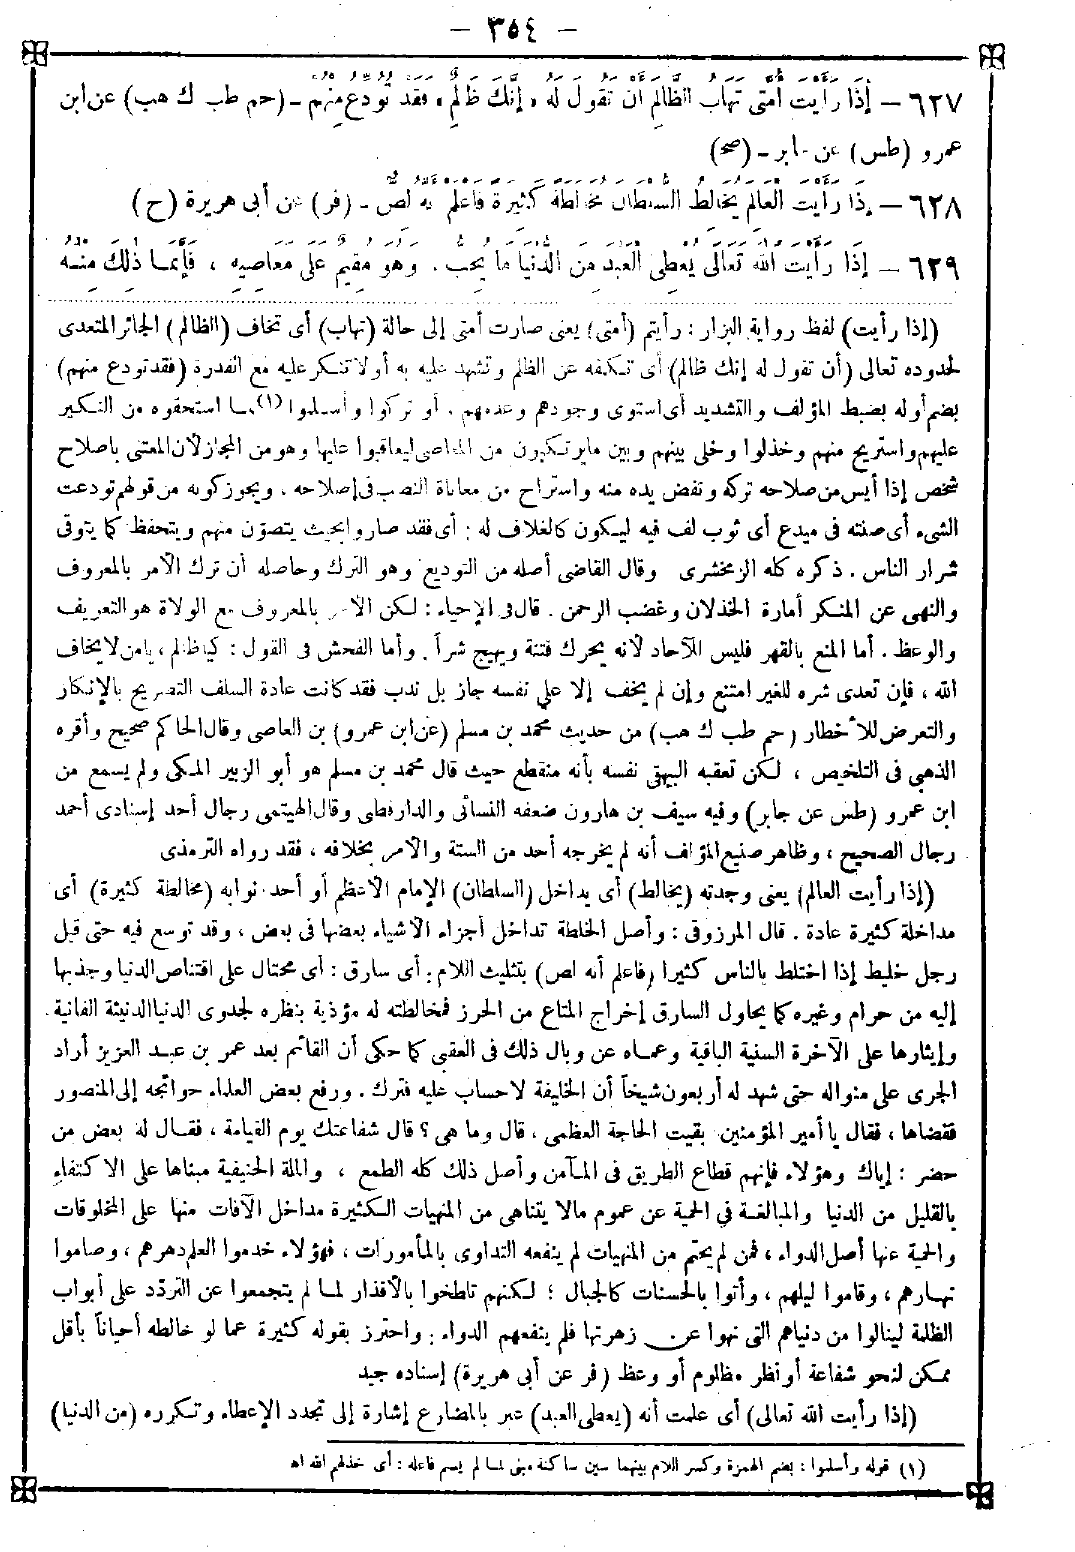 – ٣٥٤ –
٦٢٧ – إِذَا رَأَيْتَ أُمَّتِي تَهَابُ الظَّالِمَ أَنْ تَقُولَ لَهُ «إِنَّكَ ظَالِمٌ» فَقَدْ تُوُدِّعَ مِنْهُمْ – (حم طب ك هب) عن ابن
عمرو (طس) عن جابر – (صح)
٦٢٨ – إِذَا رَأَيْتَ الْعَالِمَ يُخَالِطُ السُّلْطَانَ مُخَالَطَةً كَثِيرَةً فَاعْلَمْ أَنَّهُ لِصٌّ – (فر) عن أبى هريرة (ح)
٦٢٩ – إِذَا رَأَيْتَ اللهَ تَعَالَى يُعْطِى الْعَبْدَ مِنَ الدُّنْيَا مَا يُحِبُّ، وَهُوَ مُقِيمٌ عَلَى مَعَاصِيهِ، فَإِنَّمَا ذٰلِكَ مِنْهُ
(إذا رأيت) لفظ رواية البزار: رأيتم (أمتى) يعنى صارت أمتى إلى حالة (تهاب) أى تخاف (الظالم) الجائر المتعدى
لحدوده تعالى (أن تقول له إنك ظالم) أى تكفه عن الظلم وتشهد عليه به أو لا تنكر عليه مع القدرة (فقد تودع منهم)
بضم أوله بضبط المؤلف والتشديد أى استوى وجودهم وعدمهم، أو تركوا وأسلموا (١) ما استحقوه من النكير
عليهم واستريح منهم وخذلوا وخلى بينهم وبين ما يرتكبون من المعاصى ليعاقبوا عليها وهو من المجاز لأن المعتنى باصلاح
شخص إذا أيس من صلاحه تركه ونفض يده منه واستراح من معاناة النصب فى إصلاحه، ويجوز كونه من قولهم تودعت
الشىء أى صنته فى ميدع أى ثوب لف فيه ليكون كالغلاف له: أى فقد صاروا بحيث يتصون منهم ويتحفظ كما يتوقى
شرار الناس. ذكره كله الزمخشرى وقال القاضى أصله من التوديع وهو الترك وحاصله أن ترك الأمر بالمعروف
والنهى عن المنكر أمارة الخذلان وغضب الرحمن. قال فى الإحياء: لكن الأمر بالمعروف مع الولاة هو التعريف
والوعظ. أما المنع بالقهر فليس للآحاد لأنه يحرك فتنة ويهيج شراً. وأما الفحش فى القول: كياظالم، يامن لا يخاف
الله، فإن تعدى شره للغير امتنع وإن لم يخف إلا على نفسه جاز بل ندب فقد كانت عادة السلف التصريح بالإنكار
والتعرض للأخطار (حم طب ك هب) من حديث محمد بن مسلم (عن ابن عمرو) بن العاصى وقال الحاكم صحيح وأقره
الذهبى فى التلخيص، لكن تعقبه البيهقى نفسه بأنه منقطع حيث قال محمد بن مسلم هو أبو الزبير المكى ولم يسمع من
ابن عمرو (طس عن جابر) وفيه سيف بن هارون ضعفه النسائى والدارقطى وقال الهيتمى رجال أحد إسنادى أحمد
رجال الصحيح، وظاهر صنيع المؤلف أنه لم يخرجه أحد من الستة والأمر بخلافه، فقد رواه الترمذى
(إذا رأيت العالم) يعنى وجدته (يخالط) أى يداخل (السلطان) الإمام الأعظم أو أحد نوابه (مخالطة كثيرة) أى
مداخلة كثيرة عادة. قال المرزوقى: وأصل الخلطة تداخل أجزاء الأشياء بعضها فى بعض، وقد توسع فيه حتى قيل
رجل خليط إذا اختلط بالناس كثيرا (فاعلم أنه لص) بتثليث اللام: أى سارق: أى محتال على اقتناص الدنيا وجذبها
إليه من حرام وغيره كما يحاول السارق إخراج المتاع من الحرز فمخالطته له مؤذية بنظره لجدوى الدنيا الدنيئة الفانية
وإيثارها على الآخرة السنية الباقية وعماه عن وبال ذلك فى العقبى كما حكى أن القائم بعد عمر بن عبد العزيز أراد
الجرى على منواله حتى شهد له أربعون شيخاً أن الخليفة لا حساب عليه فترك. ورفع بعض العلماء حوائجه إلى المنصور
فقضاها، فقال يا أمير المؤمنين بقيت الحاجة العظمى، قال وما هى؟ قال شفاعتك يوم القيامة، فقال له بعض من
حضر: إياك وهؤلاء فإنهم قطاع الطريق فى المأمن وأصل ذلك كله الطمع، والملة الحنيفية مبناها على الاكتفاء
بالقليل من الدنيا والمبالغة في الحمية عن عموم مالا يتناهى من المنهيات الكثيرة مداخل الآفات منها على المخلوقات
والحمية عنها أصل الدواء، فمن لم يحتم من المنهيات لم ينفعه التداوى بالمأمورات، فهؤلاء خدموا العلم دهرهم، وصاموا
نهارهم، وقاموا ليلهم، وأتوا بالحسنات كالجبال؛ لكنهم تلطخوا بالأقذار لما لم يتجمعوا عن التردّد على أبواب
الظلمة لينالوا من دنياهم التى نهوا عن زهرتها فلم ينفعهم الدواء: واحترز بقوله كثيرة عما لو خالطه أحياناً بأقل
ممكن لنحو شفاعة أو نظر مظلوم أو وعظ (فر عن أبى هريرة) إسناده جيد
(إذا رأيت الله تعالى) أى علمت أنه (يعطى العبد) عبر بالمضارع إشارة إلى تجدد الإعطاء وتكرره (من الدنيا)
(١) قوله وأسلموا: بضم الهمزة وكسر اللام بينهما سين ساكنة مبنى لما لم يسم فاعله: أى خذلهم الله اه